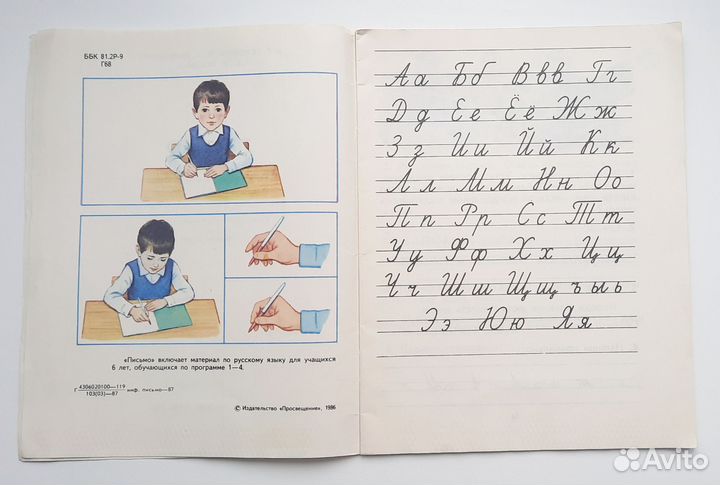 ББК 81.2Р-9
Г68
«Письмо» включает материал по русскому языку для учащихся
6 лет, обучающихся по программе 1—4.
Г 4306020100—119
103(03)—87 инф. письмо—87
© Издательство «Просвещение», 1986
Аа Бб Ввв Гг
Дд Ее Ёё Жж
Зз Ии Йй Кк
Лл Мм Нн Оо
Пп Рр Сс Тт
Уу Фф Хх Цц
Чч Шш Щщ ъыь
Ээ Юю Яя
Avito